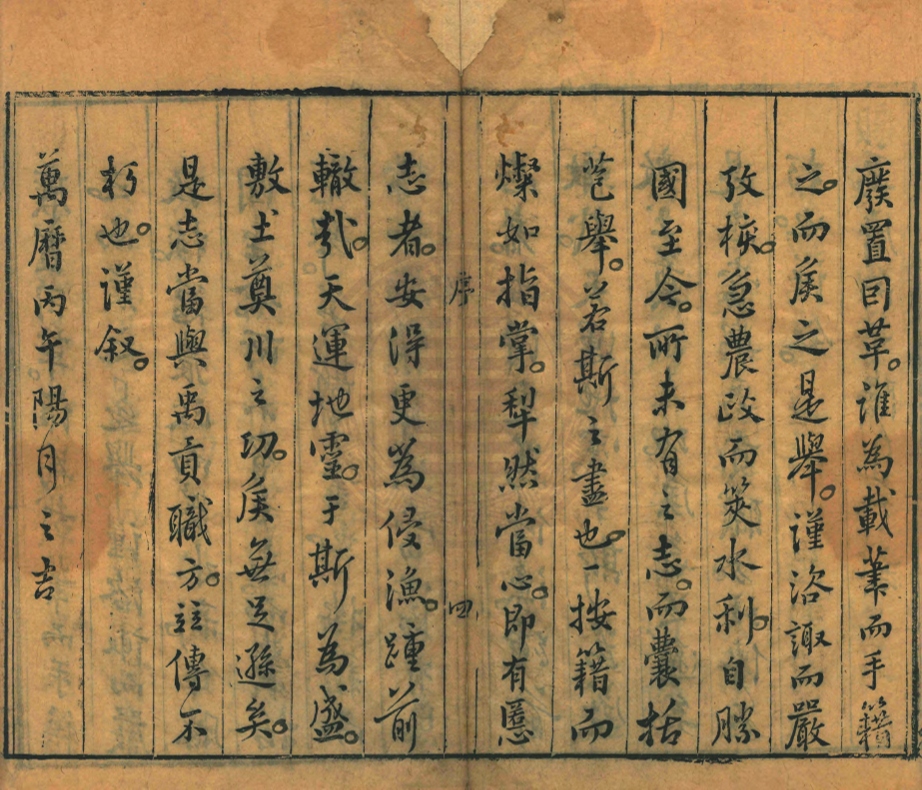 廢置因革。誰為載筆而手籍
之。而侯之是舉。謹洽諏而嚴
攷核。急農政而筴水利。自勝
國至今。所未有之志。而囊括
苞舉。若斯之盡也。一按籍而
燦如指掌。犁然當心。即有慝
志者。安得更為侵漁。踵前
轍哉。天運地靈。于斯為盛。
敷土奠川之功。侯無足遜矣。
是志當與禹貢職方。竝傳不
朽也。謹叙。
萬曆丙午陽月之吉
序
四